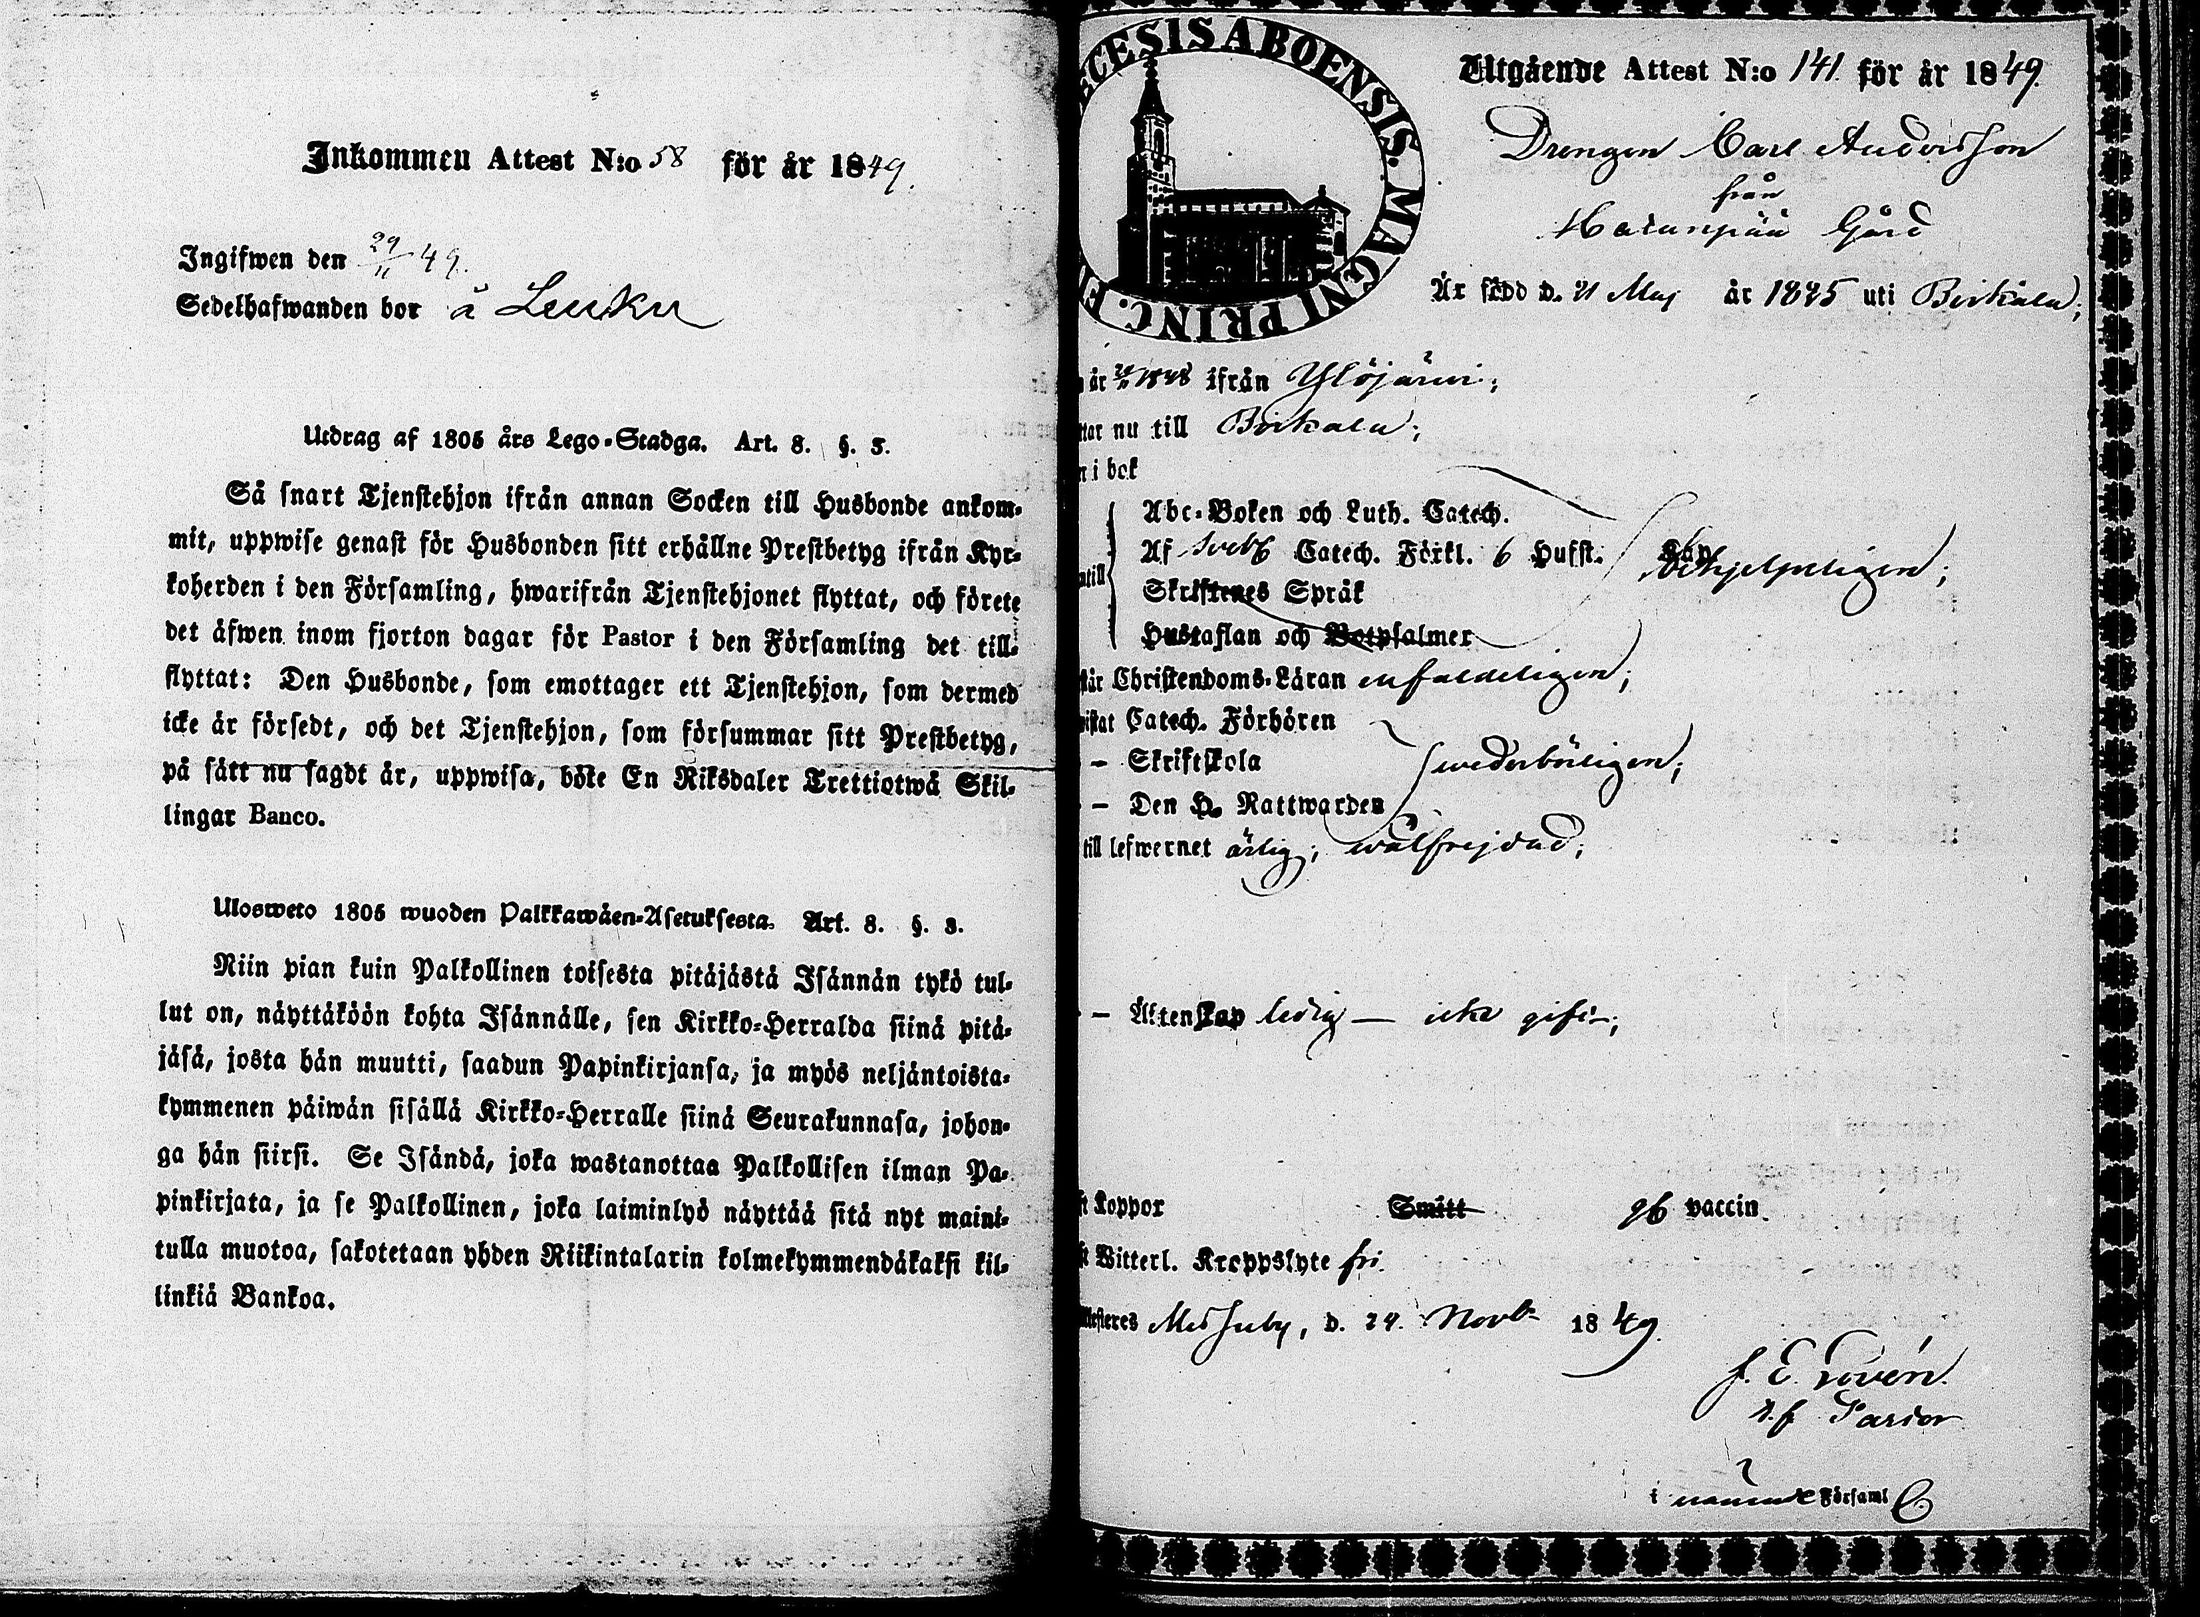 Inkommen Attest N:o 58 för år 1849.
Ingifwen den 29/11 49.
Sedelhafwanden bor å Leuku
Utdrag af 1805 års Lego-Stadga. Art. 8. §. 3.
Så snart Tjenstehjon ifrån annan Socken till Husbonde ankom-
mit, uppwise genast för Husbonden sitt erhållne Prestbetyg ifrån Kyr-
koherden i den Församling, hwarifrån Tjenstehjonet flyttat, och förete
det äfwen inom fjorton dagar för Pastor i den Församling det till-
flyttat: Den Husbonde, som emottager ett Tjenstehjon, som dermed
icke är försedt, och det Tjenstehjon, som försummar sitt Prestbetyg,
på sätt nu sagdt är, uppwisa, böte En Riksdaler Trettiotwå Skil-
lingar Banco.
Ulosweto 1805 wuoden Palkkawäen-Asetuksesta. Art. 8. §. 3.
Niin pian kuin Palkollinen toisesta pitäjästä Isännän tykö tul-
lut on, näyttäköön kohta Isännälle, sen Kirkko-Herralda siinä pitä-
jäsä, josta hän muutti, saadun Papinkirjansa, ja myös neljäntoista-
kymmenen päiwän sisällä Kirkko-Herralle siinä Seurakunnasa, johon-
ga hän siirsi. Se Isändä, joka wastanottaa Palkollisen ilman Pa-
pinkirjata, ja se Palkollinen, joka laiminlyö näyttää sitä nyt maini-
tulla muotoa, sakotetaan yhden Riikintalarin kolmekymmendäkaksi kil-
linkiä Bankoa.
CESIS ABOENSIS. MAGNI PRINC. F
Utgående Attest N:o 141. för år 1849.
Drengen Carl Andersson
från
Hatanpää Gård
Är född d. 21 Maj år 1825 uti Birkala;
år 1848 ifrån Ylöjärwi;
ttar nu till Birkala;
n i bok
Abc-Boken och Luth. Catech.
Af Sveb. Catech. Förkl. 6 Hufst. Cap.
Skriftenes Språk
Hustaflan och Botpsalmer
Behjelpeligen;
står Christendoms-Läran enfaldeligen;
wistat Catech. Förhören
– Skriftskola
– Den H. Nattwarden
swederbörligen;
till lefwernet ärlig; wälfrejdad;
– Äktenskap ledig — icke gift;
ft Koppor Smått gb vaccin
ft Witterl. Kroppslyte fri
ttesteres Messuby, d. 24. Novb. 1849.
J. E. Lovén.
v. p. Pastor
i nämnde Församl.